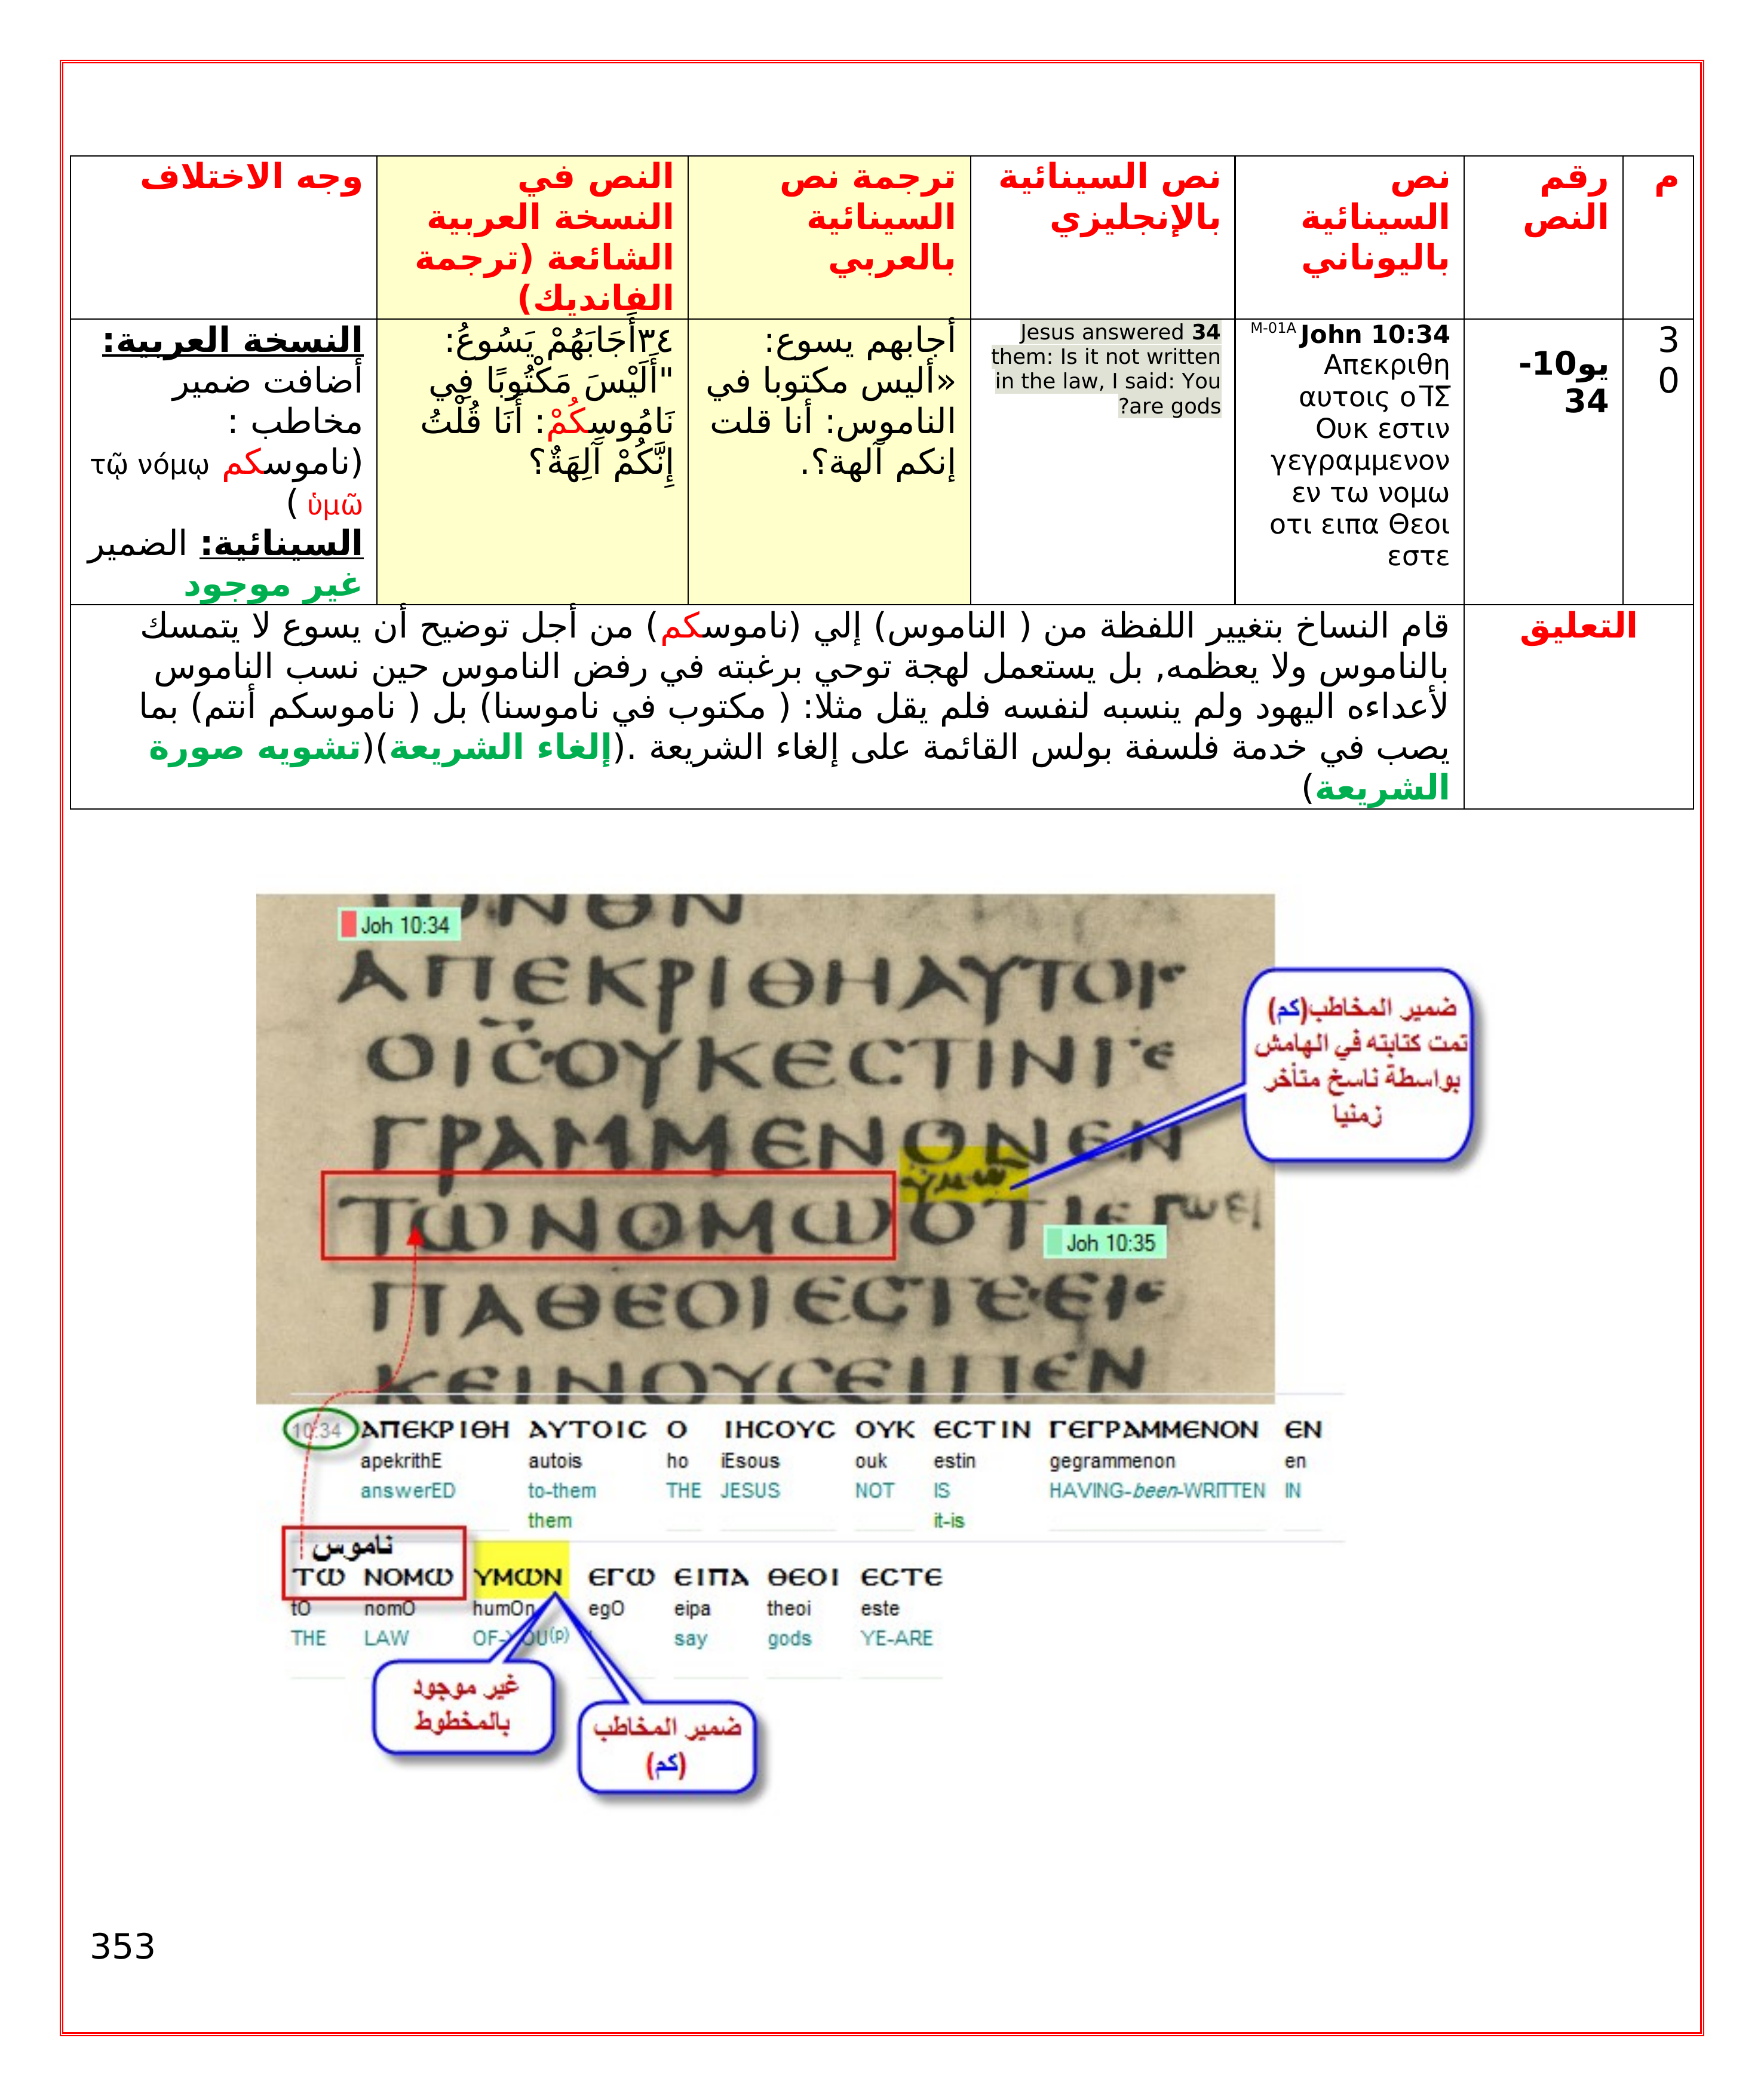 م
رقم
النص
نص
السينائية
باليوناني
نص السينائية
بالإنجليزي
ترجمة نص
السينائية
بالعربي
النص في
النسخة العربية
الشائعة (ترجمة
الفانديك)
وجه الاختلاف
3
0
يو10-
34
M-01A John 10:34
Απεκριθη
αυτοις ο ΙΣ
Ουκ εστιν
γεγραμμενον
εν τω νομω
οτι ειπα Θεοι
εστε
34 Jesus answered
them: Is it not written
in the law, I said: You
are gods?
أجابهم يسوع:
«أليس مكتوبا في
الناموس: أنا قلت
إنكم آلهة؟.
٣٤أَجَابَهُمْ يَسُوعُ:
"أَلَيْسَ مَكْتُوبًا فِي
نَامُوسِكُمْ: أَنَا قُلْتُ
إِنَّكُمْ آلِهَةٌ؟
النسخة العربية:
أضافت ضمير
مخاطب :
(ناموسكم τῷ νόμῳ
ὑμῶ )
السينائية: الضمير
غير موجود
التعليق
قام النساخ بتغيير اللفظة من ( الناموس) إلي (ناموسكم) من أجل توضيح أن يسوع لا يتمسك
بالناموس ولا يعظمه, بل يستعمل لهجة توحي برغبته في رفض الناموس حين نسب الناموس
لأعداءه اليهود ولم ينسبه لنفسه فلم يقل مثلا: ( مكتوب في ناموسنا) بل ( ناموسكم أنتم) بما
يصب في خدمة فلسفة بولس القائمة على إلغاء الشريعة .(إلغاء الشريعة)(تشويه صورة
الشريعة)
Joh 10:34
ΑΠΕΚΡΙΘΗΑΥΤΟΙϹ
ΟΙϹΟΥΚΕϹΤΙΝΓΕ
ΓΡΑΜΜΕΝΟΝΕΝ
υμω
ΤΩΝΟΜΩΟΤΙΕΓΩΕΙ
Joh 10:35
ΠΑΘΕΟΙΕϹΤΕΕΙΕ
ΚΕΙΝΟΥϹΕΙΠΕΝ
ضمير المخاطب(كم)
تمت كتابته في الهامش
بواسطة ناسخ متأخر
زمنيا
10:34 ΑΠΕΚΡΙΘΗ ΑΥΤΟΙϹ Ο ΙΗϹΟΥϹ ΟΥΚ ΕϹΤΙΝ ΓΕΓΡΑΜΜΕΝΟΝ ΕΝ
apekrithE autois ho iEsous ouk estin gegrammenon en
answerED to-them THE JESUS NOT IS HAVING-been-WRITTEN IN
them it-is
ناموس
ΤΩ ΝΟΜΩ ΥΜΩΝ ΕΓΩ ΕΙΠΑ ΘΕΟΙ ΕϹΤΕ
tO nomO humOn egO eipa theoi este
THE LAW OF-YOU(p) say gods YE-ARE
غير موجود
بالمخطوط
ضمير المخاطب
(كم)
353